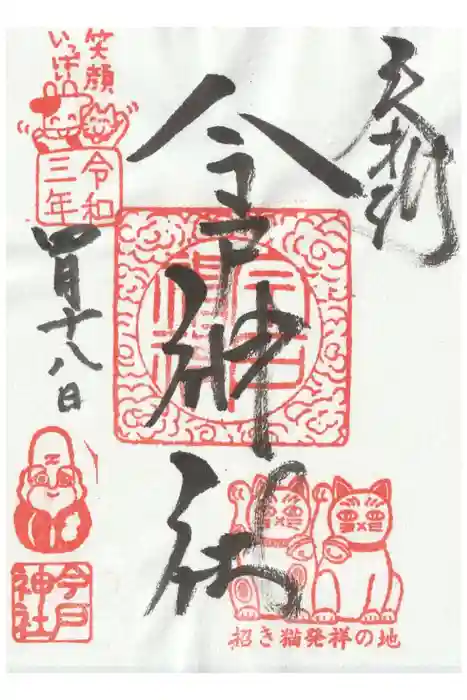 奉拝
今戸神社
笑顔
いっぱい
令和
三年
四月十八日
今戸
神社
招き猫発祥の地